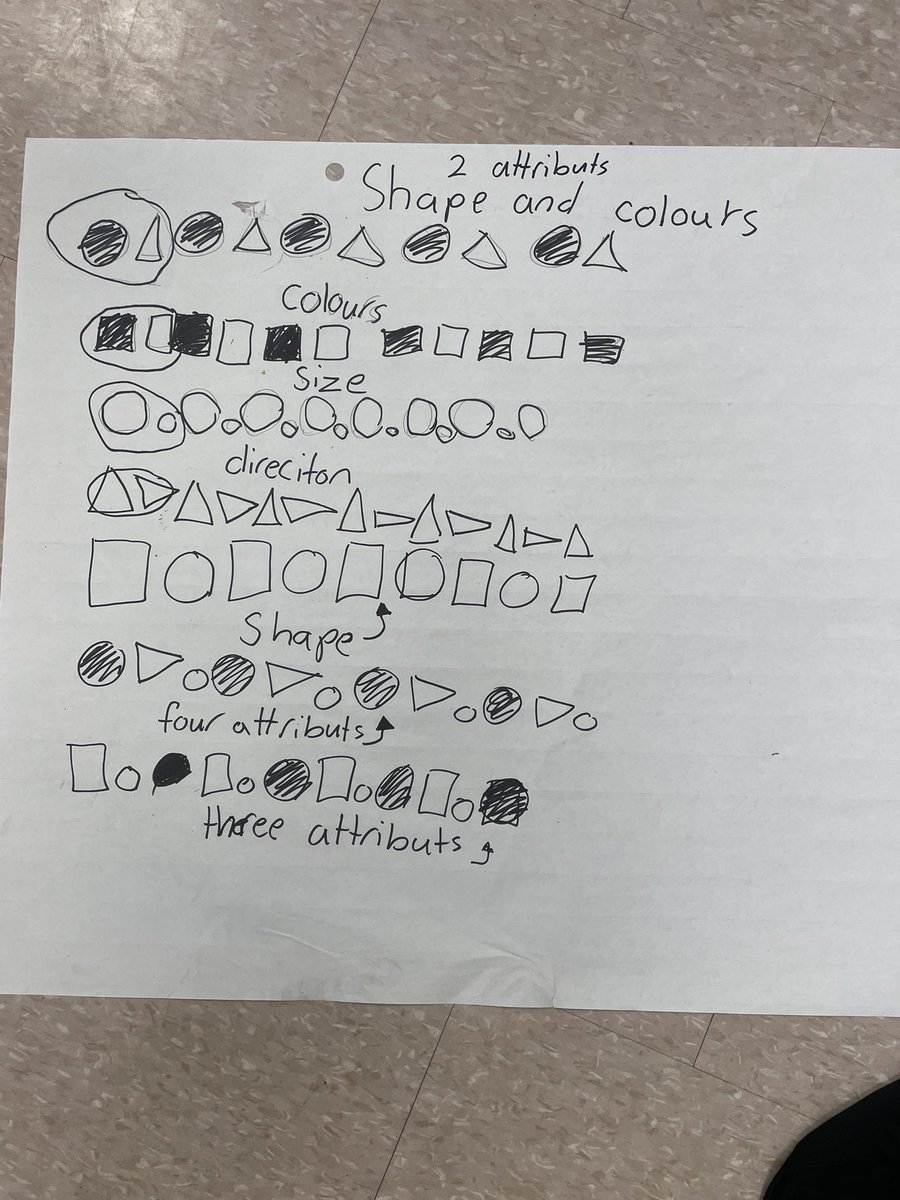 2 attributs
Shape and colours
colours
Size
direciton
Shape
four attributs
three attributs